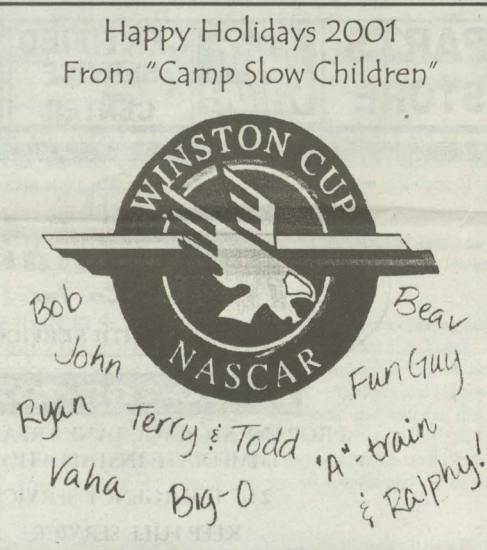 Happy Holidays 2001
From "Camp Slow Children"
WINSTON CUP
NASCAR
Bob
John
Ryan
Vaha
Terry & Todd
Big-O
Bear
Fun Guy
"A"-train
& Ralphy!